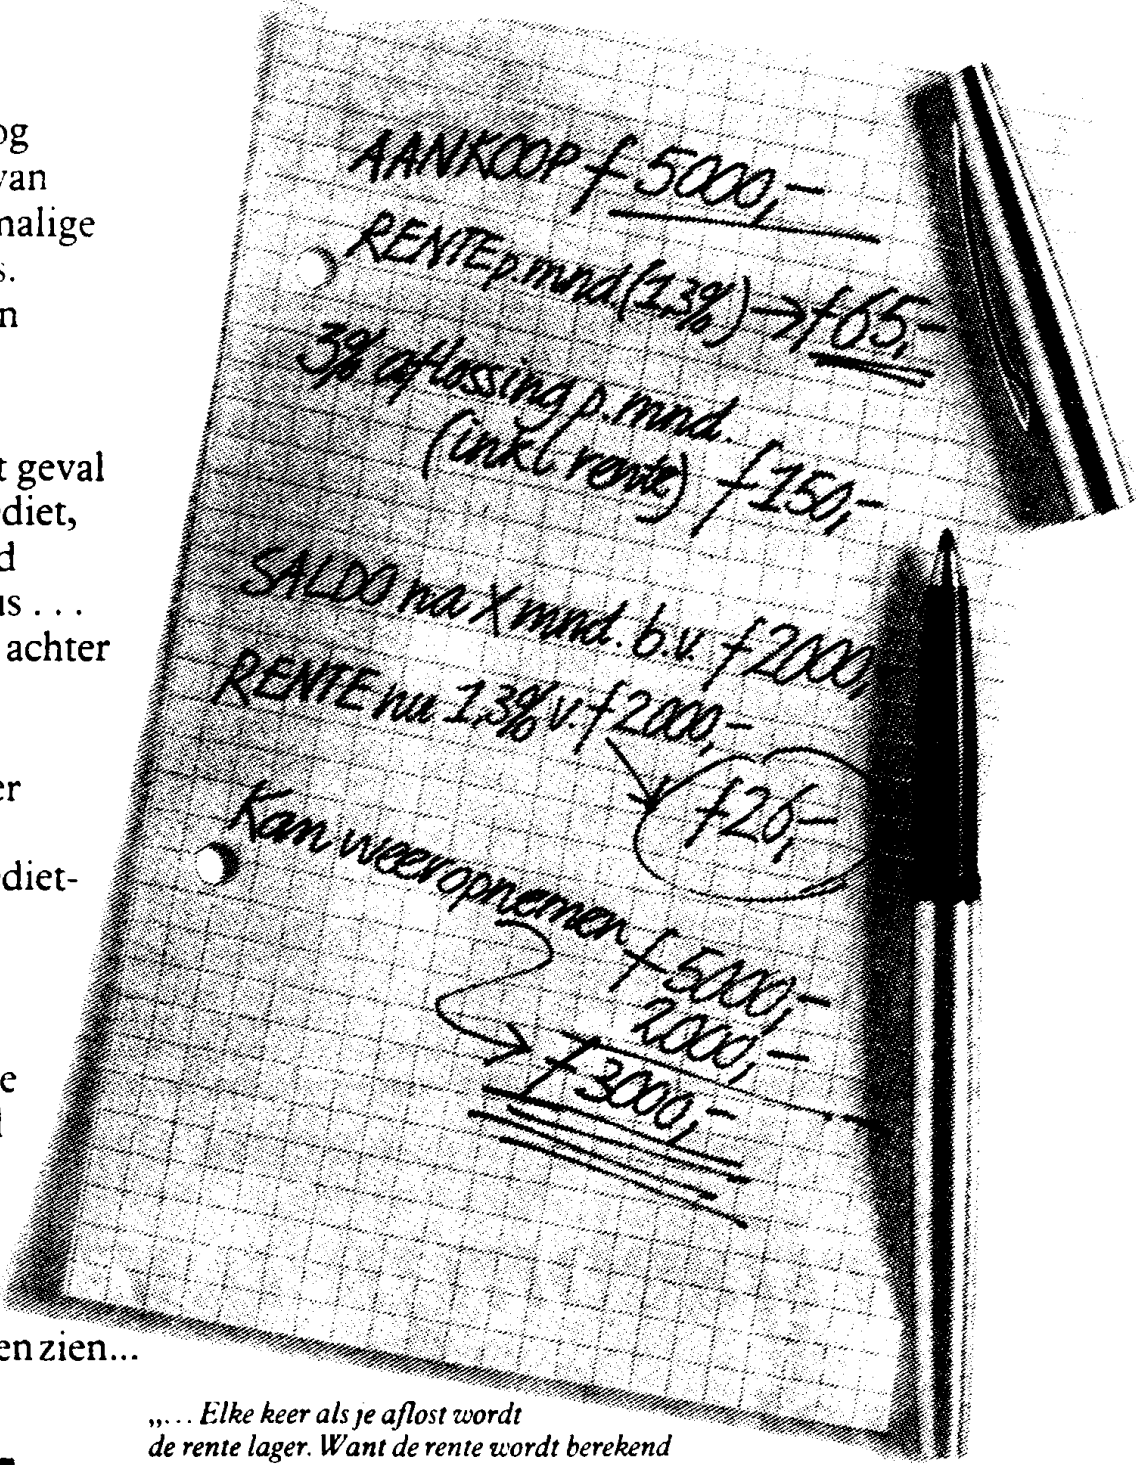 og
van
malige
s.
n
t geval
diet,
d
us ...
achter
er
diet-
e
l
en zien...
AANKOOP f 5000,-
RENTE p.mnd.(1,3%) → f65,-
3% aflossing p.mnd.
(inkl. rente) f150,-
SALDO na X mnd. b.v. f2000,
RENTE nu 1,3% v. f2000,-
f26,-
Kan weer opnemen f5000,-
2000,-
f3000,-
„... Elke keer als je aflost wordt
de rente lager. Want de rente wordt berekend